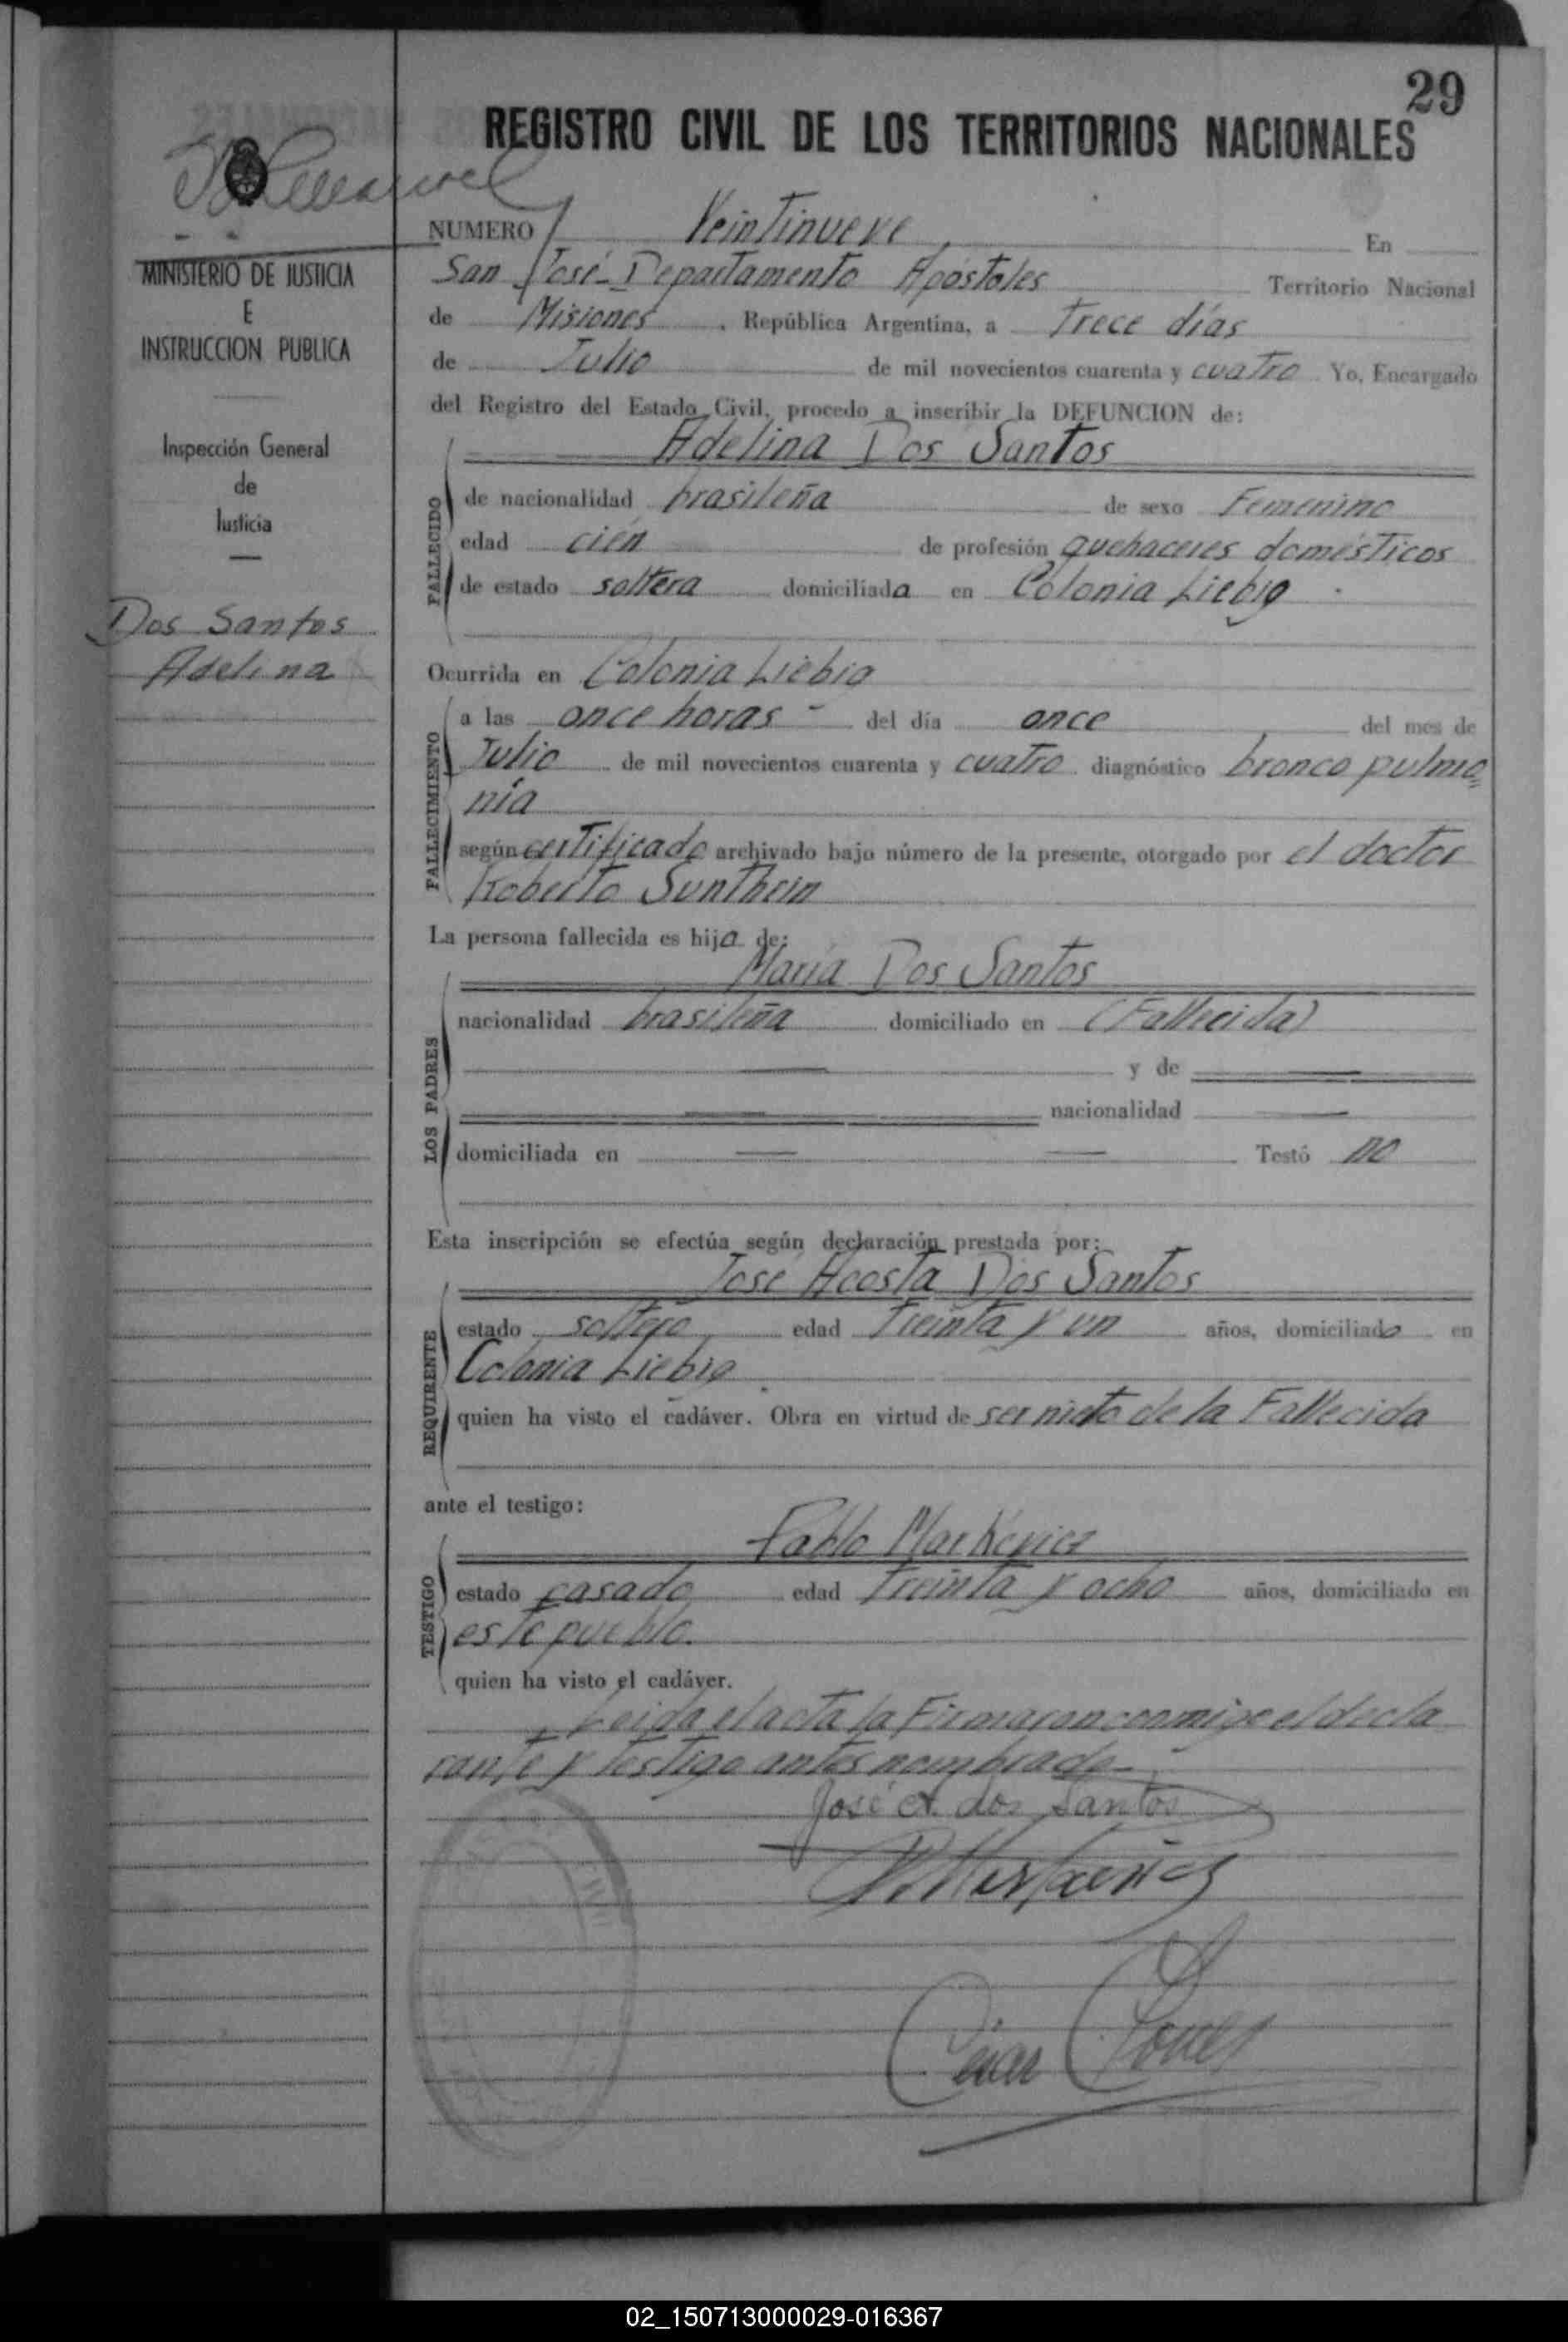 29
REGISTRO CIVIL DE LOS TERRITORIOS NACIONALES
MINISTERIO DE JUSTICIA
E
INSTRUCCION PUBLICA
Inspección General
de
Justicia
Dos Santos
Adelina
NUMERO Veintinueve, En
San José - Departamento Apóstoles Territorio Nacional
de Misiones, República Argentina, a trece días
de Julio de mil novecientos cuarenta y cuatro Yo, Encargado
del Registro del Estado Civil, procedo a inscribir la DEFUNCION de:
Adelina Dos Santos
FALLECIDO
de nacionalidad brasileña de sexo Femenino
edad cién de profesión quehaceres domésticos
de estado soltera domiciliada en Colonia Liebig.
Ocurrida en Colonia Liebig
FALLECIMIENTO
a las once horas - del día once del mes de
Julio de mil novecientos cuarenta y cuatro diagnóstico bronco pulmo=
nía
según certificado archivado bajo número de la presente, otorgado por el doctor
Roberto
La persona fallecida es hija de:
María Dos Santos
LOS PADRES
nacionalidad brasileña domiciliado en (Fallecida)
y de
nacionalidad
domiciliada en Testó no
Esta inscripción se efectúa según declaración prestada por:
José Acosta Dos Santos
REQUIRENTE
estado soltero edad treinta y un años, domiciliado en
Colonia Liebig.
quien ha visto el cadáver. Obra en virtud de ser nieto de la Fallecida
ante el testigo:
Pablo Markevicz
TESTIGO
estado casado edad treinta y ocho años, domiciliado en
este pueblo.
quien ha visto el cadáver.
Leida el acta la Firmaron conmigo el decla
rante y testigo antes nombrado-
José A. dos Santos
02_150713000029-016367